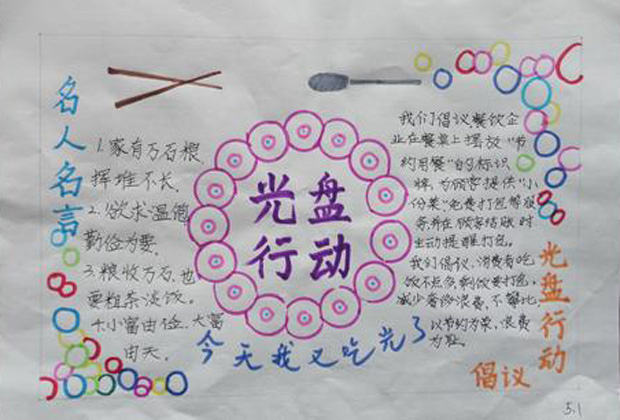 名人名言
1.家有万石粮,
挥堆不长.
2.欲求温饱
勤俭为要.
3.粮收万石,也
要粗茶淡饭。
4.小富由俭,大富
由天.
光盘
行动
今天我又吃光了
我们倡议餐饮企
业在餐桌上摆放"节
约用餐"的标识
牌,为顾客提供"小
份菜"免费打包等服
务,并在顾客结账时
主动提醒打包。
我们倡议,消费者吃
饭不点多剩饭要打包,
减少奢侈浪费,不攀比,
以节约为荣,浪费
为耻.
光盘行动
倡议
5.1